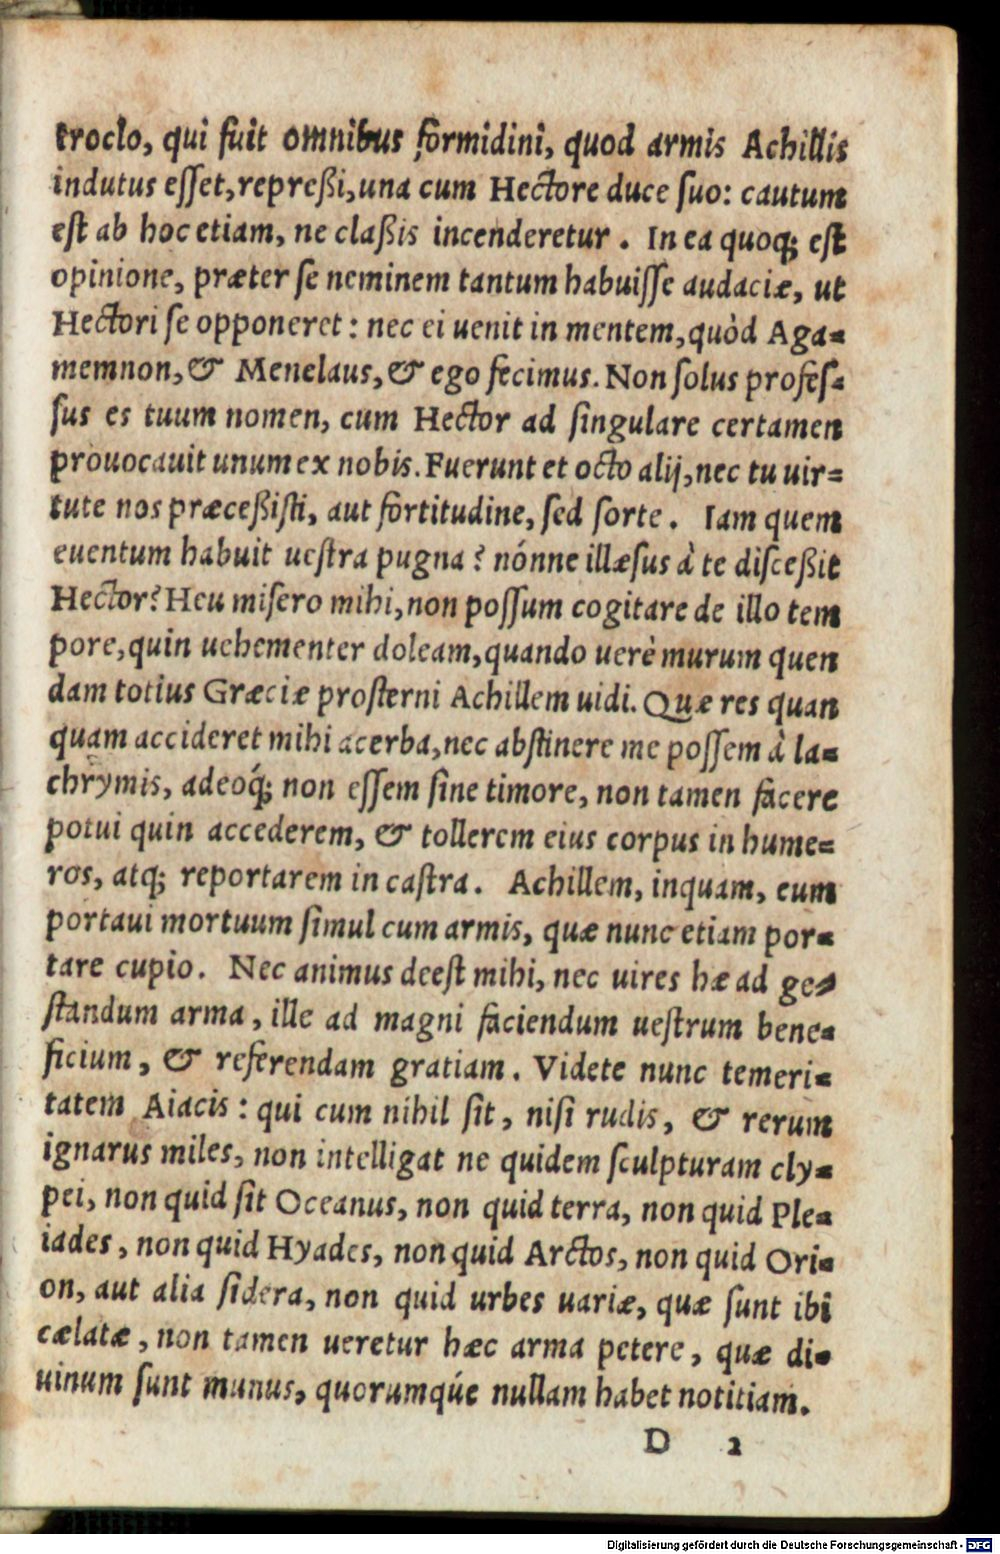 troclo, qui fuit omnibus formidini, quod armis Achillis
indutus esset, repreßi, una cum Hectore duce suo: cautum
est ab hoc etiam, ne claßis incenderetur. In ea quoq; est
opinione, præter se neminem tantum habuisse audaciæ, ut
Hectori se opponeret: nec ei uenit in mentem, quòd Aga-
memnon, & Menelaus, & ego fecimus. Non solus profes-
sus es tuum nomen, cum Hector ad singulare certamen
prouocauit unum ex nobis. Fuerunt et octo alij, nec tu uir-
tute nos præceßisti, aut fortitudine, sed sorte. Iam quem
euentum habuit uestra pugna? nónne illæsus à te disceßit
Hector? Heu misero mihi, non possum cogitare de illo tem
pore, quin uehementer doleam, quando uerè murum quen
dam totius Græciæ prosterni Achillem uidi. Quæ res quan
quam accideret mihi acerba, nec abstinere me possem à la-
chrymis, adeoq́; non essem sine timore, non tamen facere
potui quin accederem, & tollerem eius corpus in hume-
ros, atq; reportarem in castra. Achillem, inquam, eum
portaui mortuum simul cum armis, quæ nunc etiam por-
tare cupio. Nec animus deest mihi, nec uires hæ ad ge-
standum arma, ille ad magni faciendum uestrum bene-
ficium, & referendam gratiam. Videte nunc temeri-
tatem Aiacis: qui cum nihil sit, nisi rudis, & rerum
ignarus miles, non intelligat ne quidem sculpturam cly-
pei, non quid sit Oceanus, non quid terra, non quid Ple-
iades, non quid Hyades, non quid Arctos, non quid Ori-
on, aut alia sidera, non quid urbes uariæ, quæ sunt ibi
cælatæ, non tamen ueretur hæc arma petere, quæ di-
uinum sunt munus, quorumqúe nullam habet notitiam.
D 2
Digitalisierung gefördert durch die Deutsche Forschungsgemeinschaft - DFG